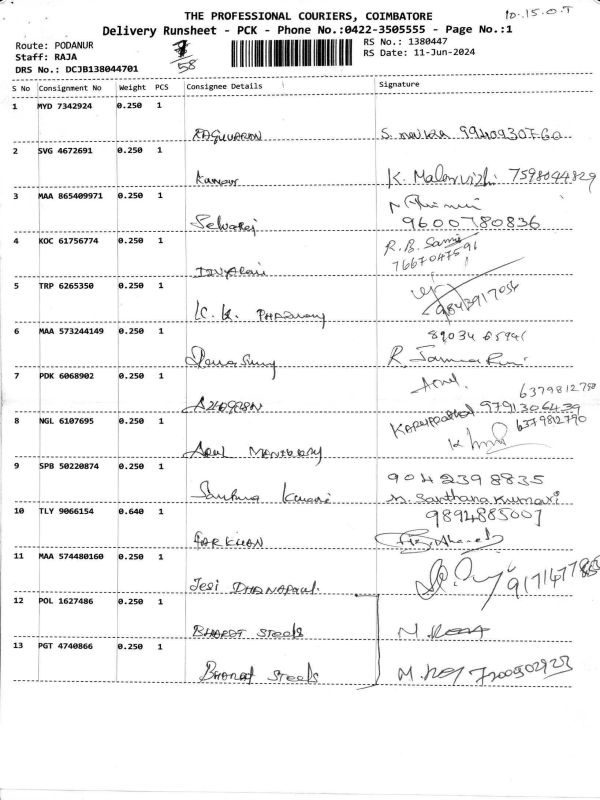 THE PROFESSIONAL COURIERS, COIMBATORE
10.15.0.T
Delivery Runsheet - PCK - Phone No.:0422-3505555 - Page No.:1
Route: PODANUR
RS No.: 1380447
Staff: RAJA
58
RS Date: 11-Jun-2024
DRS No.: DCJB138044701
S No Consignment No Weight PCS Consignee Details Signature
1 MYD 7342924 0.250 1
2 SVG 4672691 0.250 1
K. Malarvizhi 7598044829
3 MAA 865409971 0.250 1
Selvaraj 9600780836
4 KOC 61756774 0.250 1
R.B. Samis
7667047591
5 TRP 6265350 0.250 1
9843917054
K. K. Pharmacy
6 MAA 573244149 0.250 1
89034 65941
R
7 PDK 6068902 0.250 1
6379812790
9791306439
8 NGL 6107695 0.250 1
6379812790
Arul
9 SPB 50220874 0.250 1
9042398835
Santhana Kumari N. Santhana Kumari
10 TLY 9066154 0.640 1
9894885007
Farkhan
11 MAA 574480160 0.250 1
Jesi Dhanapaul.
12 POL 1627486 0.250 1
Bharat Steels
13 PGT 4740866 0.250 1
Bharat Steels M. 7200502923